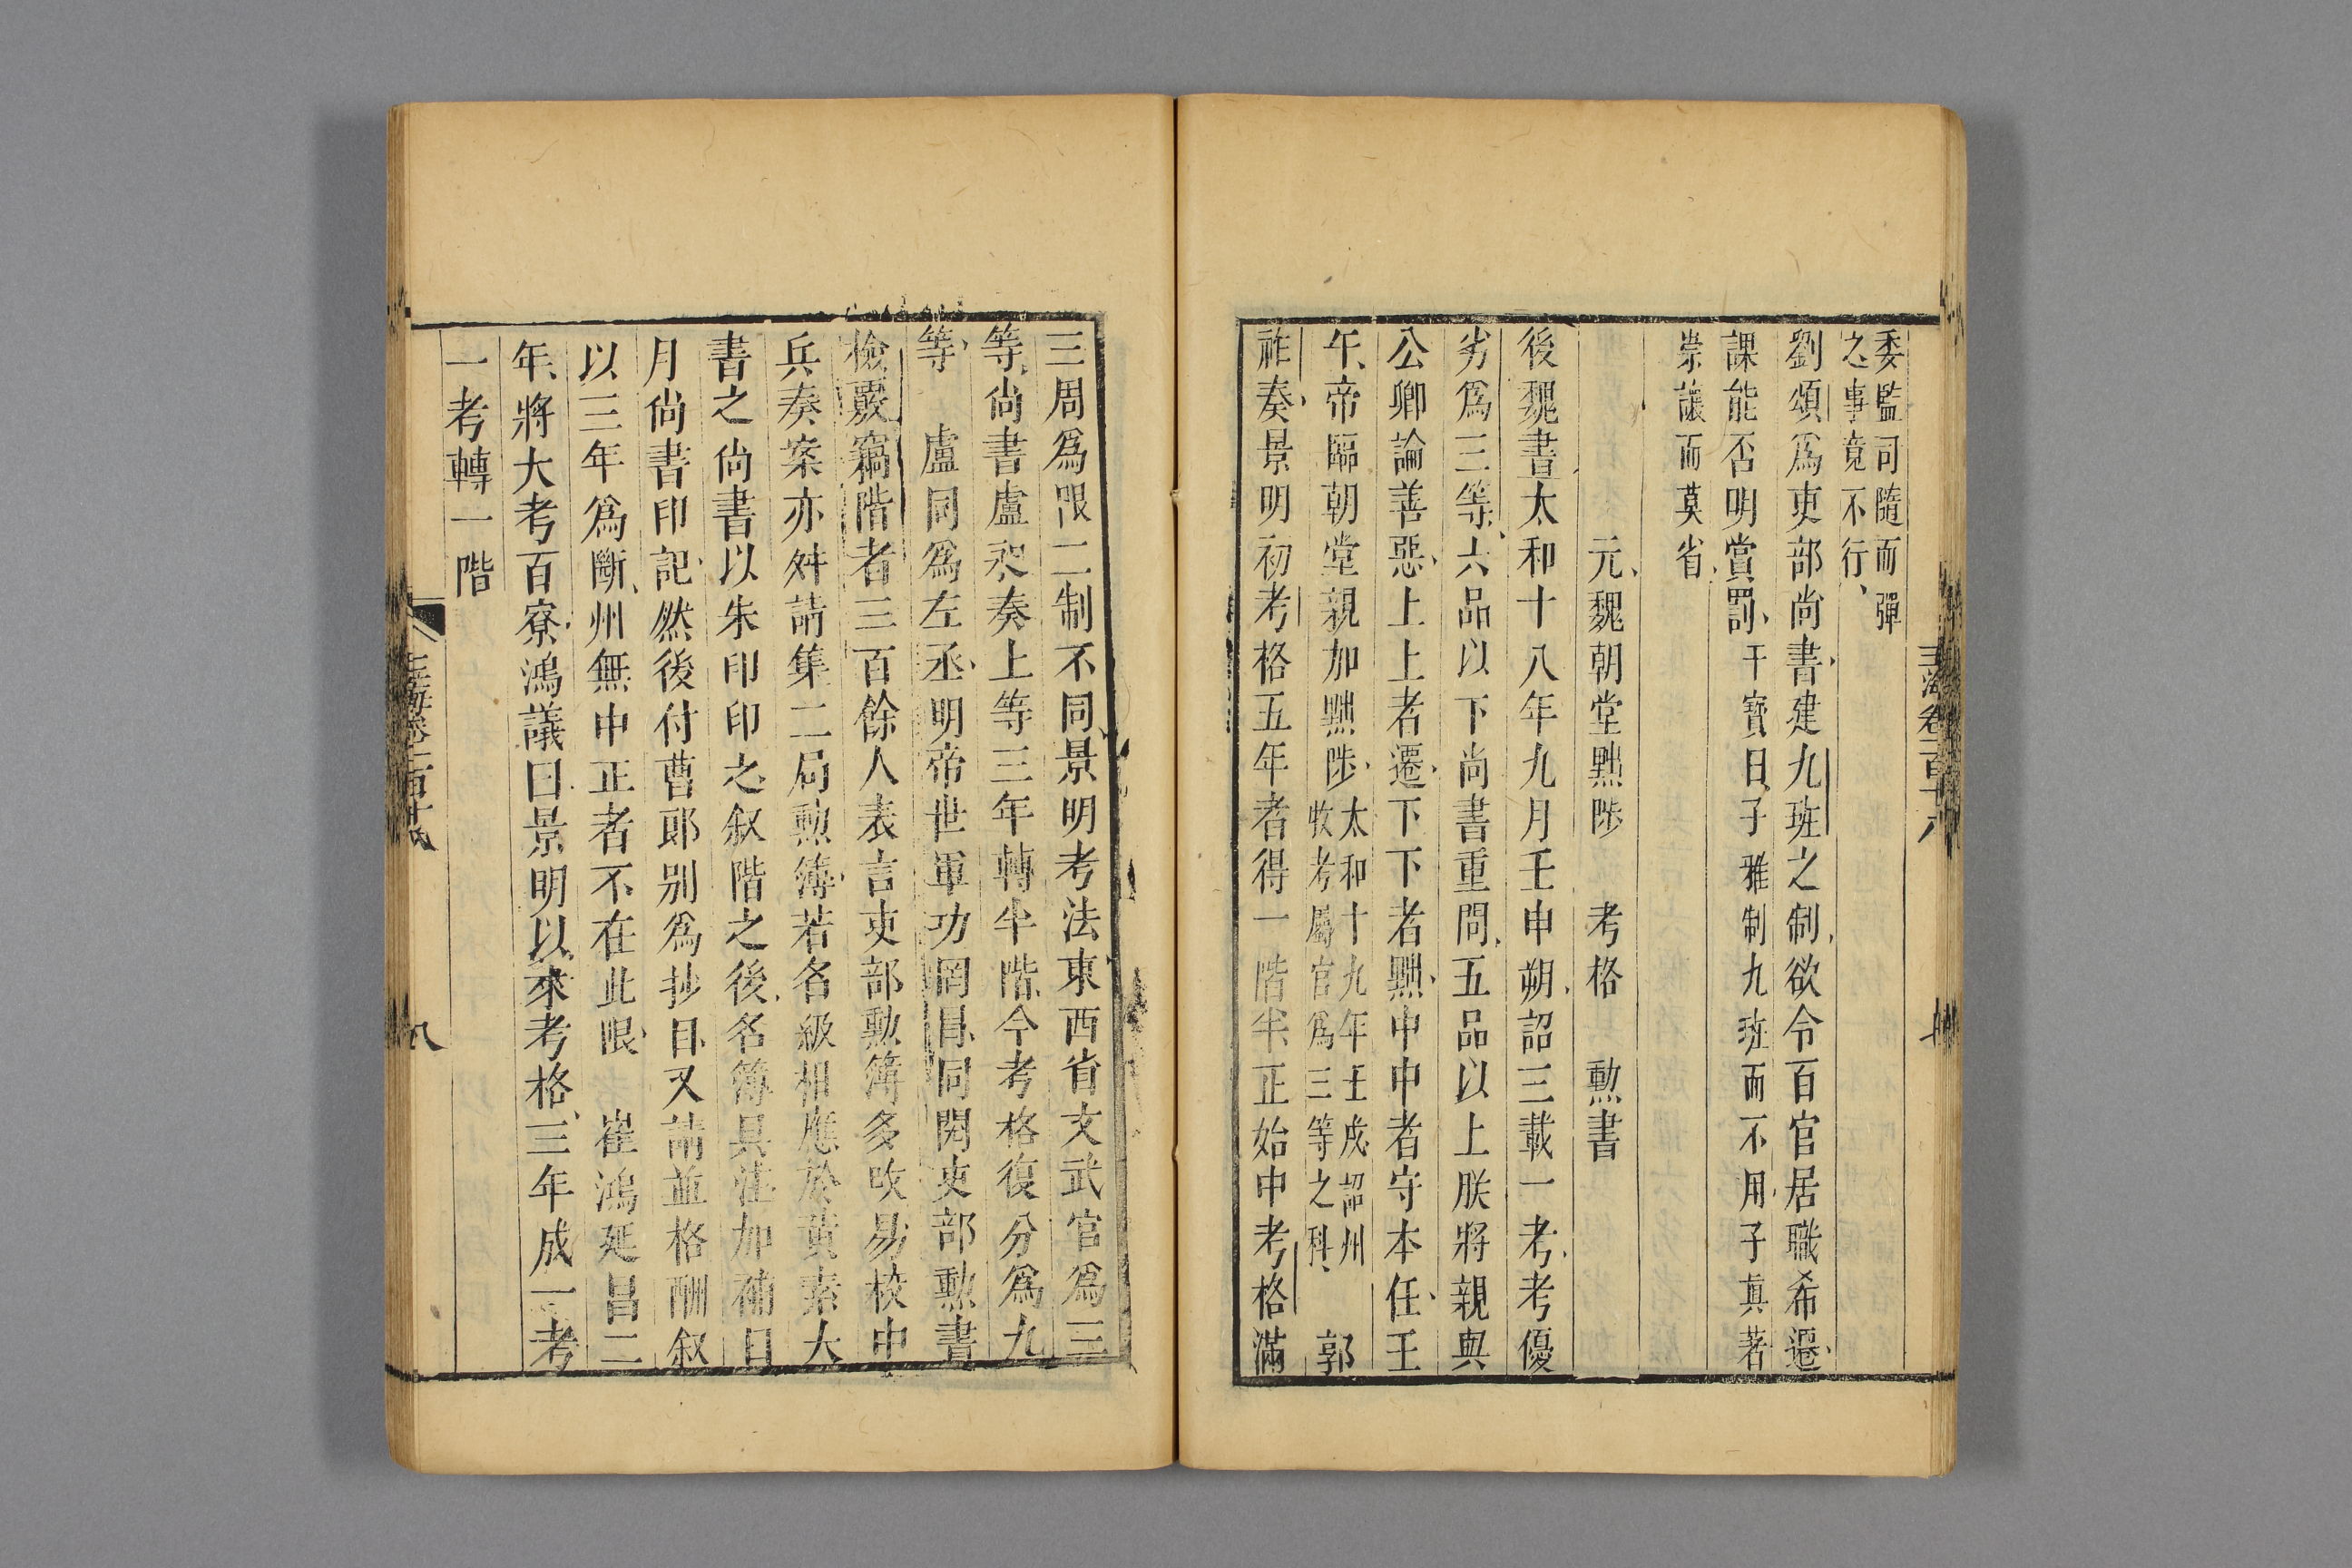 委監司隨而彈
之事竟不行
劉頌爲吏部尚書建九班之制欲令百官居職希遷
課能否明賞罰干寶曰子雅制九班而不用子真著
崇讓而莫省
元魏朝堂黜陟 考格 勲書
後魏書太和十八年九月壬申朔詔三載一考考優
劣爲三等六品以下尚書重問五品以上朕將親與
公卿論善惡上上者遷下下者黜中中者守本任壬
午帝臨朝堂親加黜陟太和十九年壬戌詔州
牧考屬官爲三等之科 郭
祚奏景明初考格五年者得一階半正始中考格滿
三周爲限二制不同景明考法東西省文武官爲三
等尚書盧昶奏上等三年轉半階今考格復分爲九
等 盧同爲左丞明帝世軍功冒同閱吏部勲書
檢覈竊階者三百餘人表言吏部勲簿多改易校中
兵奏案亦舛請集二局勲簿若名級相應於黃素大
書之尚書以朱印印之叙階之後名簿具注加補日
月尚書印記然後付曹郎别爲抄目又請並格酬叙
以三年爲斷州無中正者不在此限 崔鴻延昌二
年將大考百寮鴻議曰景明以來考格三年成一考
一考轉一階